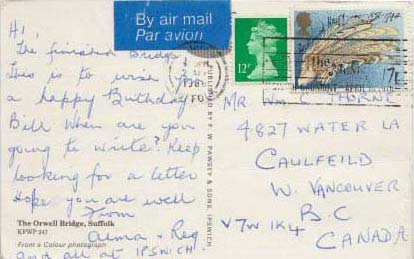 By air mail
Par avion
Hi,
The finished Bridge
This is to wish
a happy Birthday
Bill When are you
going to write? Keep
looking for a letter
Hope you are well
From
Alma & Reg
and all at IPSWICH.
The Orwell Bridge, Suffolk
KPWP 247
From a Colour photograph
PUBLISHED BY W. PAWSEY & SONS, IPSWICH.
12P
17P
MR Wm C THORNE
4827 WATER LA
CAULFEILD
W. VANCOUVER
B.C
V7W 1K4
CANADA